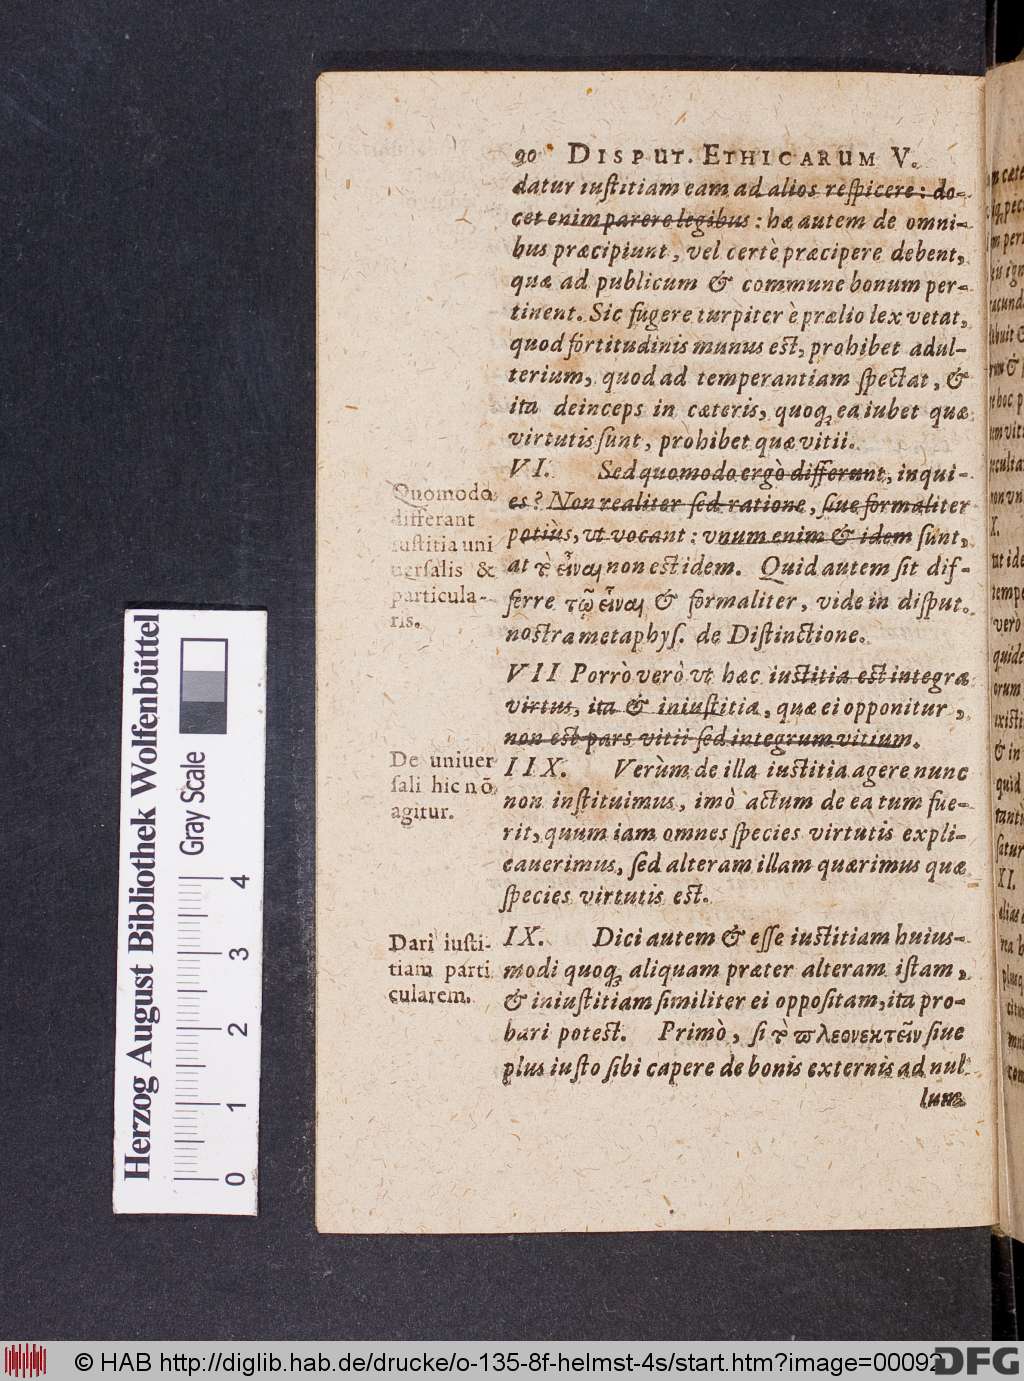 90 DISPUT. ETHICARUM V.
datur iustitiam eam ad alios respicere: do-
cet enim parere legibus: hæ autem de omni-
bus præcipiunt, vel certè præcipere debent,
quæ ad publicum & commune bonum per-
tinent. Sic fugere turpiter è prælio lex vetat,
quod fortitudinis munus est, prohibet adul-
terium, quod ad temperantiam spectat, &
ita deinceps in cæteris, quoq; ea iubet quæ
virtutis sunt, prohibet quæ vitii.
Quomodo
differant
iustitia uni
uersalis &
particula-
ris.
VI. Sed quomodo ergò differunt, inqui-
es? Non realiter sed ratione, siue formaliter
potiùs, vt vocant: vnum enim & idem sunt,
at τὸ εἶναι non est idem. Quid autem sit dif-
ferre τῷ εἶναι & formaliter, vide in disput.
nostra metaphys. de Distinctione.
VII Porrò verò vt hæc iustitia est integra
virtus, ita & iniustitia, quæ ei opponitur,
non est pars vitii sed integrum vitium.
De uniuer
sali hic nō
agitur.
IIX. Verùm de illa iustitia agere nunc
non instituimus, imò actum de ea tum fue-
rit, quum iam omnes species virtutis expli-
cauerimus, sed alteram illam quærimus quæ
species virtutis est.
Dari iusti-
tiam parti
cularem.
IX. Dici autem & esse iustitiam huius-
modi quoq; aliquam præter alteram istam,
& iniustitiam similiter ei oppositam, ita pro-
bari potest. Primò, si τὸ πλεονεκτεῖν siue
plus iusto sibi capere de bonis externis ad nul
lum
Herzog August Bibliothek Wolfenbüttel
Gray Scale
0 1 2 3 4
© HAB http://diglib.hab.de/drucke/o-135-8f-helmst-4s/start.htm?image=00092
DFG